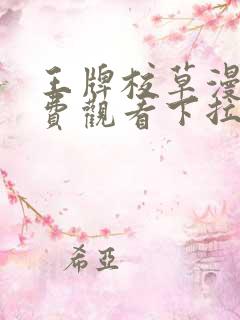 王牌校草漫
費觀看下拉
希亞